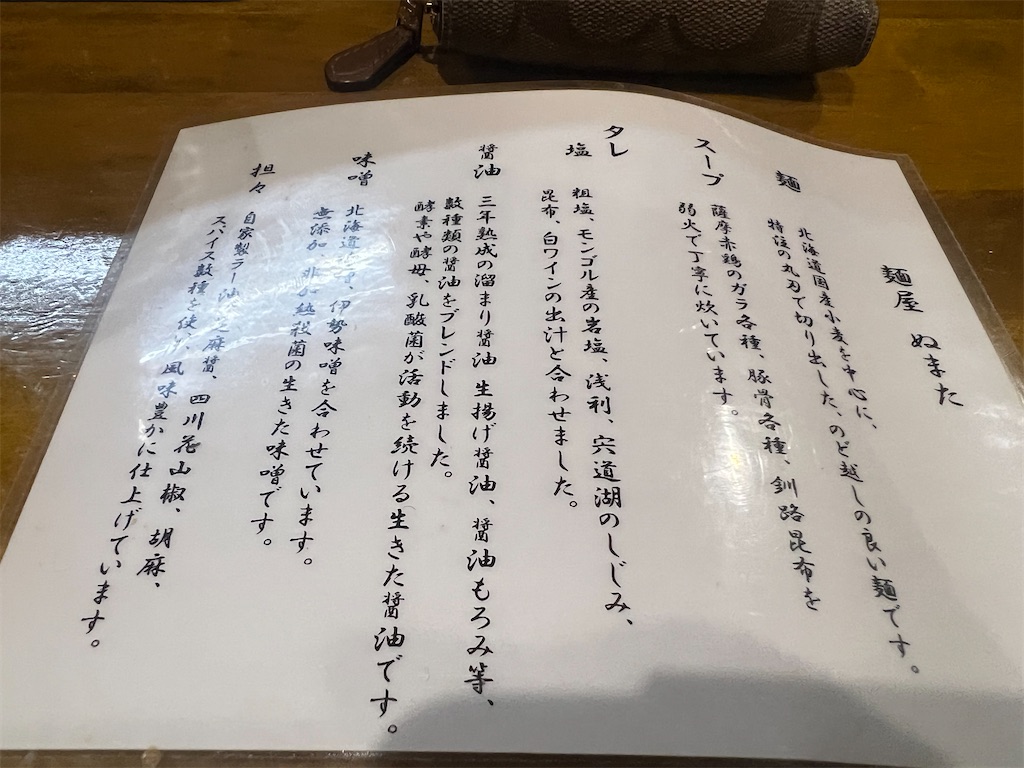 麺屋 ぬまた
麺
北海道国産小麦を中心に、
特注の丸刃で切り出した、のど越しの良い麺です。
スープ
薩摩赤鶏のガラ各種、豚骨各種、釧路昆布を
弱火で丁寧に炊いています。
タレ
塩
粗塩、モンゴル産の岩塩、浅利、宍道湖のしじみ、
昆布、白ワインの出汁と合わせました。
醤油
三年熟成の溜まり醤油 生揚げ醤油、醤油もろみ等、
数種類の醤油をブレンドしました。
酵素や酵母、乳酸菌が活動を続ける生きた醤油です。
味噌
北海道、伊勢味噌を合わせています。
無添加、非加熱殺菌の生きた味噌です。
担々
自家製ラー油、麻醤、四川花山椒、胡麻、
スパイス数種を使い風味豊かに仕上げています。